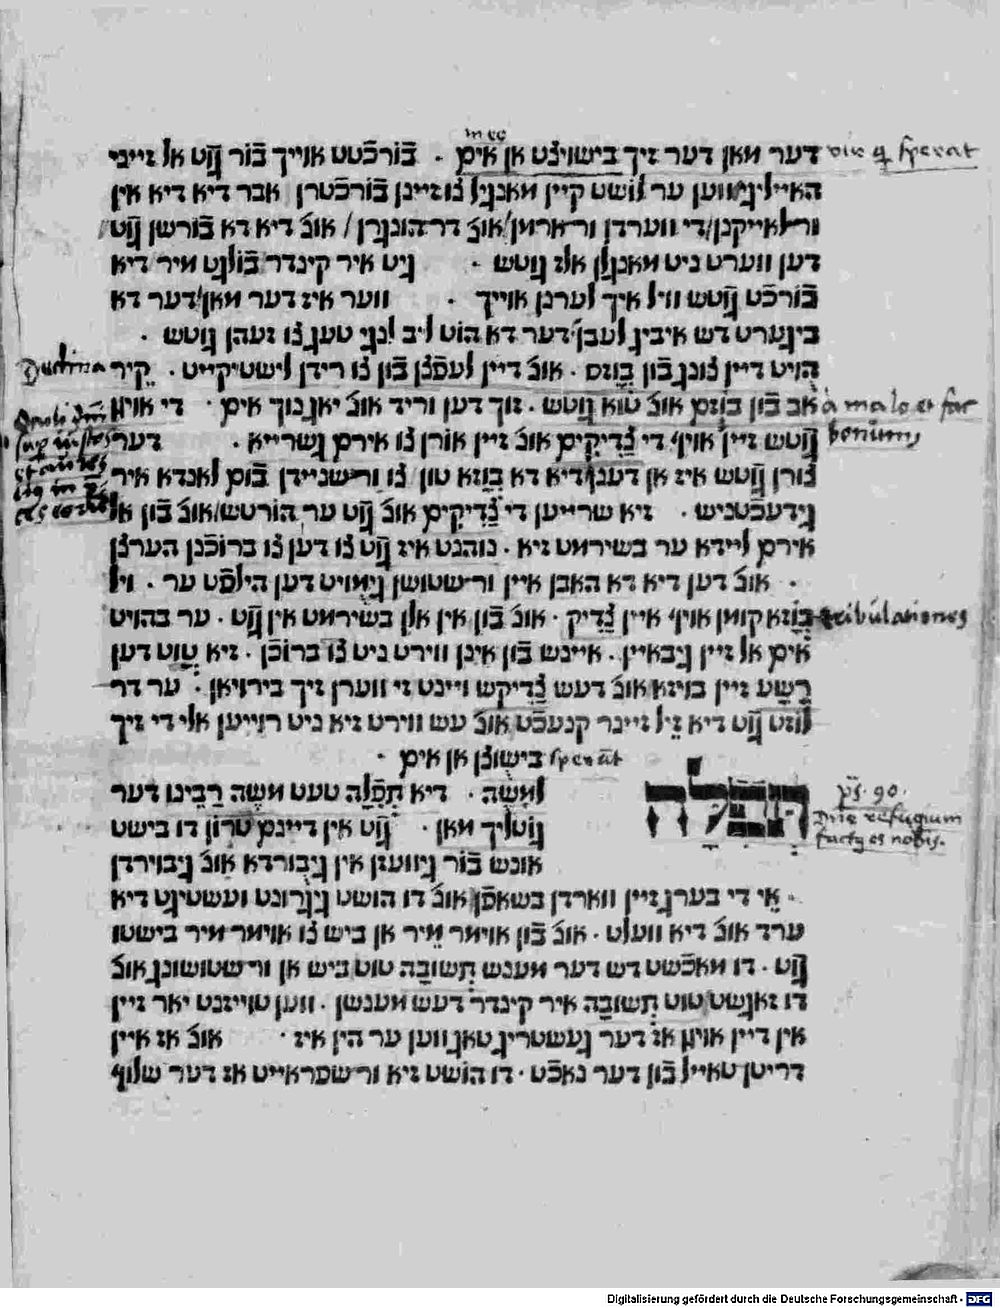 דער מאן דער זיך בישויצט אן אים . בורכטט אוייך בור גוט אל זייני vir q sperat
האייליגי ווען ער לושט קיין מאנגיל צו זיינן בורכטרן אבר דיא דיא אין
ור לאייקנן / די ווערדן ור ארמן / אונ דר הונגרן / אונ דיא דא בורשן גוט
דען ווערט ניט מאנגלן אלז גוטש . גיט איר קינדר בולגט מיר דיא
בורכט גוטש וויל איך לערנן אוייך . ווער איז דער מאן / דער דא
ביגערט דש איביג לעבן / דער דא הוט ליב לנגי טעג צו זעהן גוטש .
הויט דיין צונג בון בוזם . אונ דיין לעפצן בון צו רידן לישטיקייט . קיר
אב בון בוזם אונ טוא גוטש . זוך דען וריד אונ יאג נוך אים . די אויגן a malo et fac
גוטש זיין אויף די צדיקים אונ זיין אורן צו אירם גשרייא . דער bonum
צורן גוטש איז אן דענן דיא דא בוזא טון צו ור שניידן בום לאנדא איר
גידעכטניש . זיא שרייען די צדיקים אונ גוט ער הורטש / אונ בון אל
אירם ליידא ער בשירמט זיא . נוהנט איז גוט צו דען צו ברוכנן הערצן
. אונ דען דיא דא האבן איין ור שטושן גימויט דען הילפט ער . ויל
בוזא קומן אויף איין צדיק . אונ בון אין אלן בשירמט אין גוט . ער בהויט tribulationes
אים אל זיין גיבאיין . איינש בון אינן ווירט ניט צו ברוכן . זיא טויט דען
רשע זיין בויזא אונ דעש צדיקש ויינט זי ווערן זיך בירויאן . ער דר
לוזט גוט דיא זיל זיינר קנעכט אונ עש ווירט זיא ניט רוייען אלי די זיך
בישוצן אן אים . sperat
תפלה למשה . דיא תפלה טעט משה רבינו דער ps. 90.
גוטליך מאן . גוט אין דיינם טרון דו בישט Dne refugium
אונש בור גיוועזן אין גיבורדא אונ גיבוירדן factus es nobis.
. אי די בערג זיין ווארדן בשאפן אונ דו הושט גיגרונט ועשטיגט דיא
ערד אונ דיא וועלט . אונ בון אוימר מיר אן ביש צו אוימר מיר בישטו
גוט . דו מאכשט דש דער מענש תשובה טוט ביש אן ור שטושונג אונ
דו זאגשט טוט תשובה איר קינדר דעש מענשן . ווען טוייזנט יאר זיין
אין דיין אויגן אז דער געשטריג טאג ווען ער הין איז . אונ אז איין
דריטן טאייל בון דער נאכט . דו הושט זיא ור שפראייט אז דער שלוף
Digitalisierung gefördert durch die Deutsche Forschungsgemeinschaft - DFG